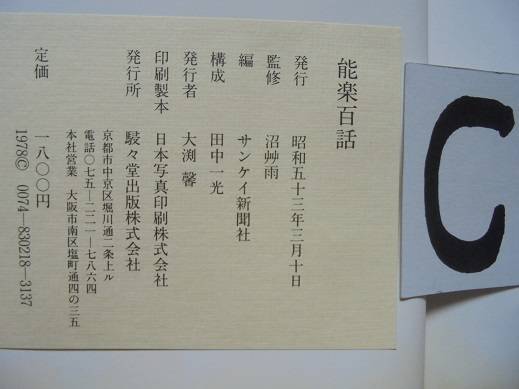 能楽百話
発行 昭和五十三年三月十日
監修 沼艸雨
編 サンケイ新聞社
構成 田中一光
発行者 大渕馨
印刷製本 日本写真印刷株式会社
発行所 駸々堂出版株式会社
京都市中京区堀川通二条上ル
電話〇七五—二二一—七八六四
本社営業 大阪市南区塩町通四の三五
定価 一八〇〇円
1978© 0074—830218—3137
C